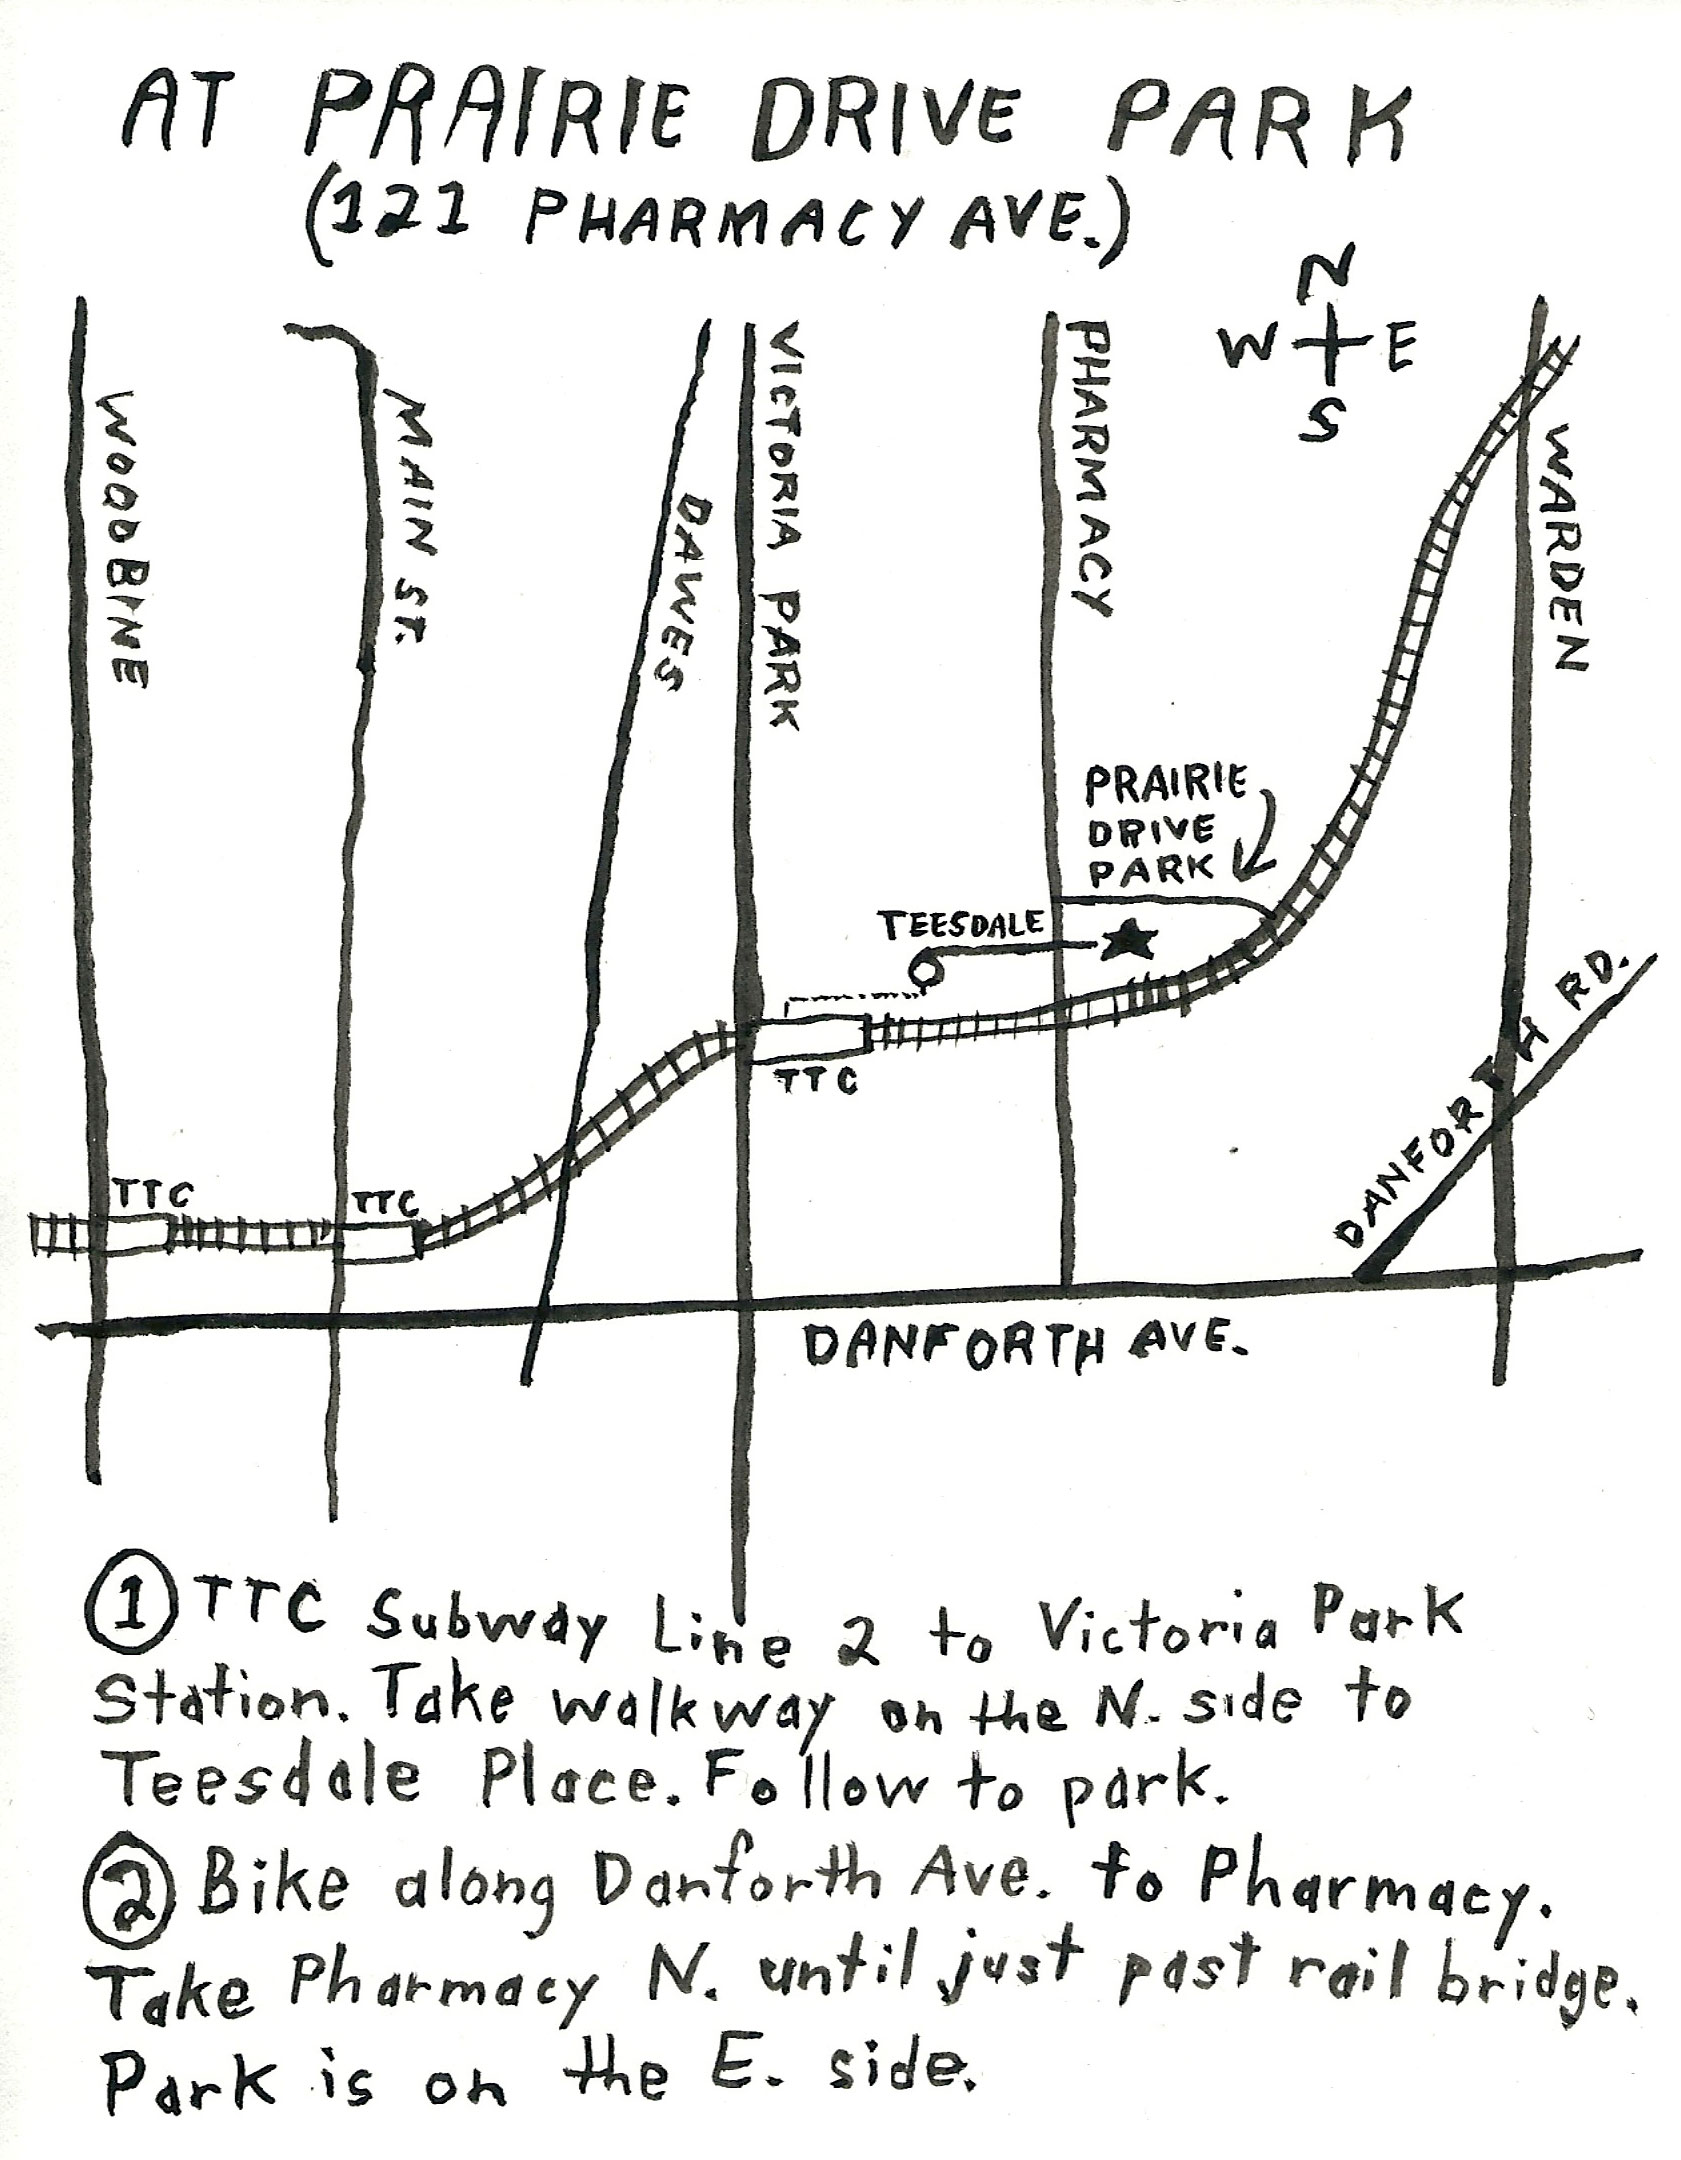 AT PRAIRIE DRIVE PARK
(121 PHARMACY AVE.)
N
W E
S
WOODBINE
MAIN ST.
DAWES
VICTORIA PARK
PHARMACY
WARDEN
PRAIRIE
DRIVE
PARK
TEESDALE
TTC
TTC
TTC
DANFORTH RD.
DANFORTH AVE.
1 TTC Subway Line 2 to Victoria Park
Station. Take walkway on the N. side to
Teesdale Place. Follow to park.
2 Bike along Danforth Ave. to Pharmacy.
Take Pharmacy N. until just past rail bridge.
Park is on the E. side.